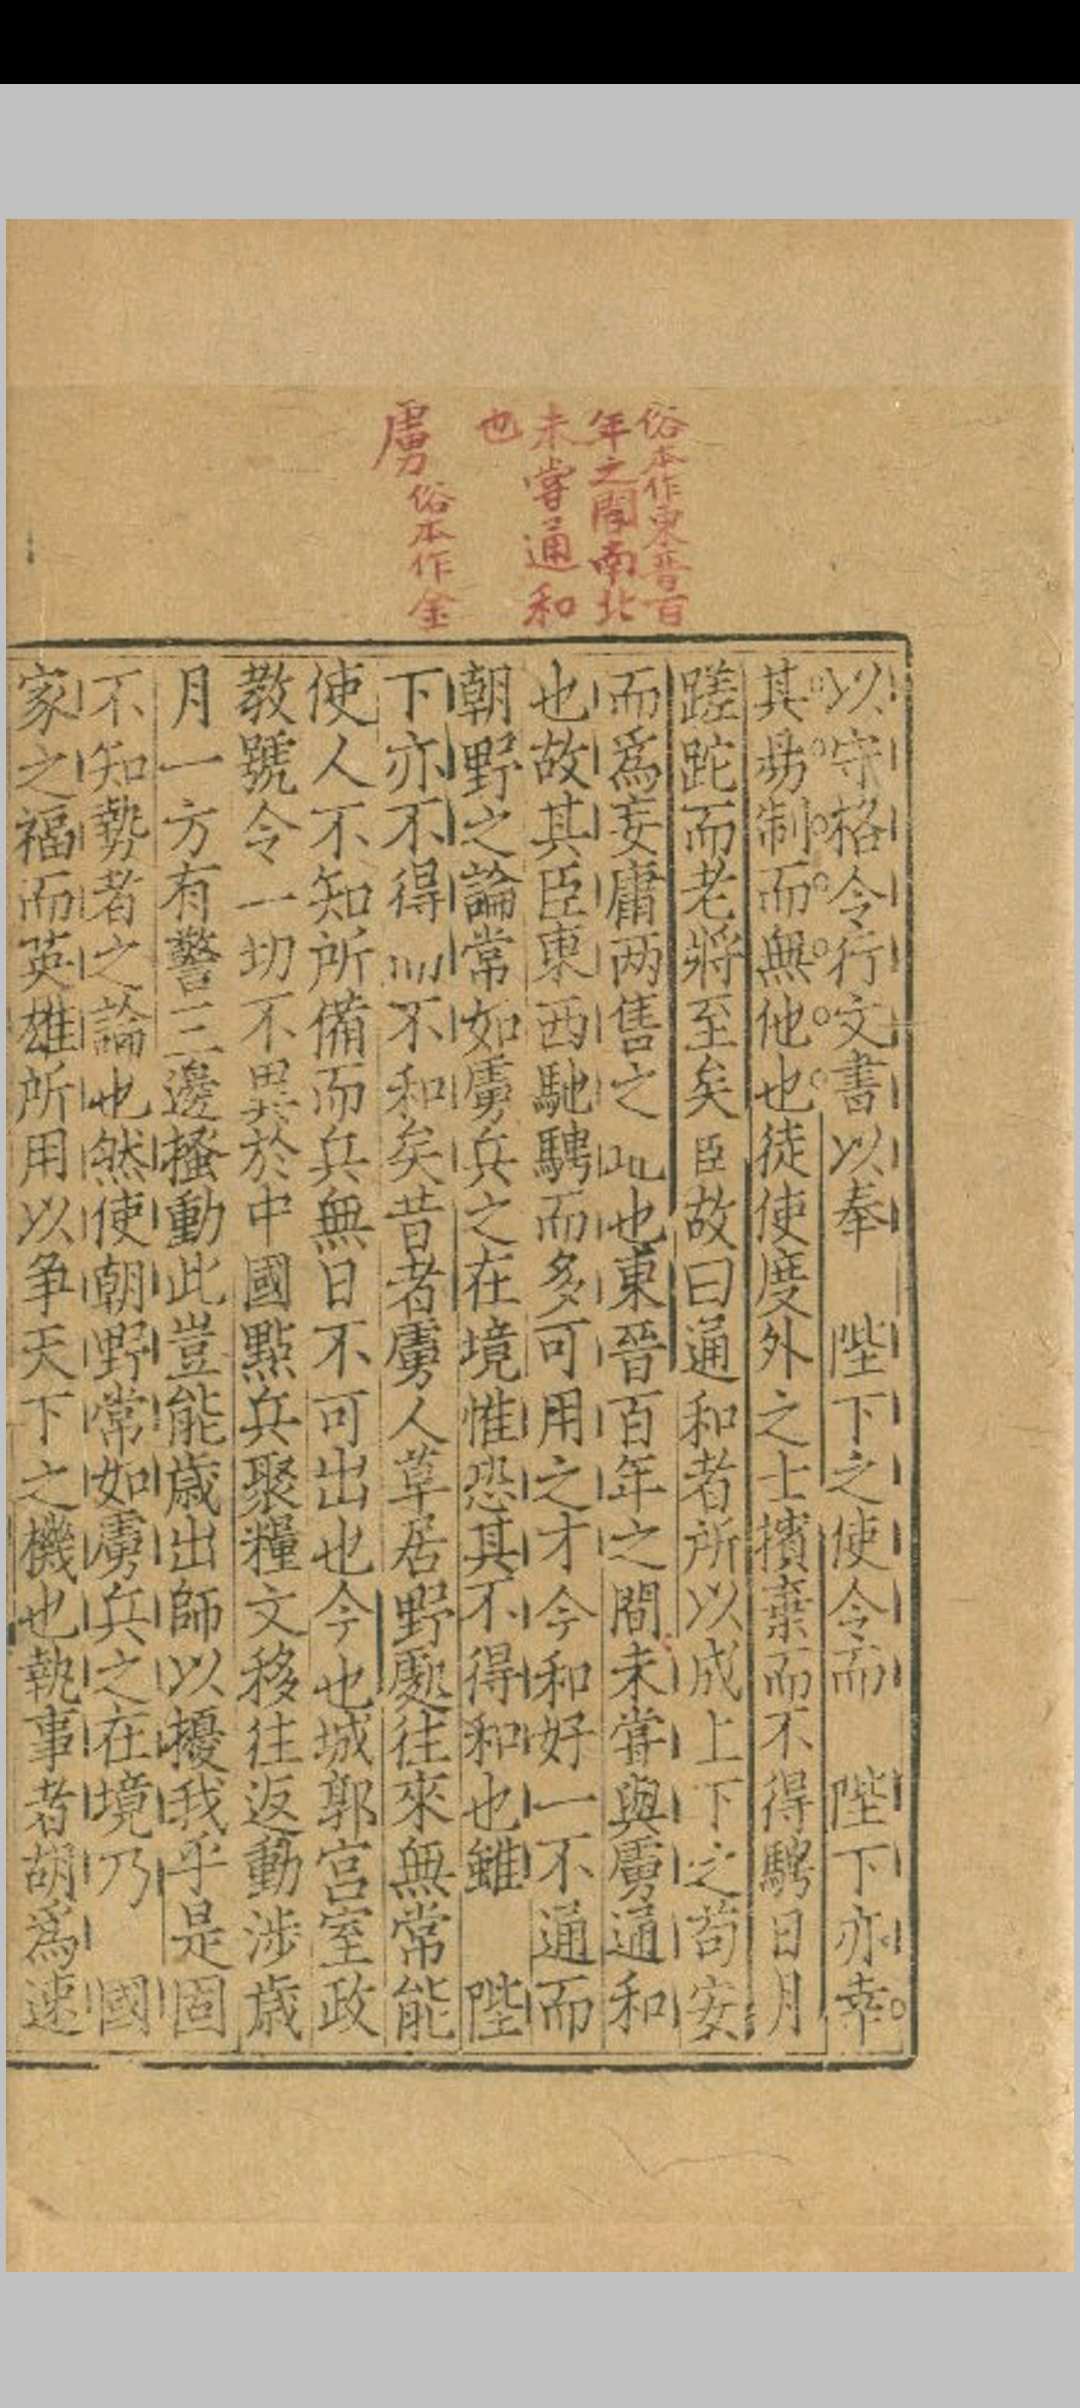 俗本作東晉百
年之間南北
未甞通和
也
虜俗本作金
以守格令行文書以奉 陛下之使令而 陛下亦幸
其易制而無他也徒使度外之士擯棄而不得騁日月
蹉跎而老將至矣臣故曰通和者所以成上下之苟安
而爲妄庸兩售之地也東晉百年之間未甞與虜通和
也故其臣東西馳騁而多可用之才今和好一不通而
朝野之論常如虜兵之在境惟恐其不得和也雖 陛
下亦不得不和矣昔者虜人草居野處往來無常能
使人不知所備而兵無日不可出也今也城郭宮室政
教號令一切不異於中國點兵聚糧文移往返動涉歲
月一方有警三邊搔動此豈能歲出師以擾我乎是固
不知勢者之論也然使朝野常如虜兵之在境乃 國
家之福而英雄所用以爭天下之機也執事者胡爲速